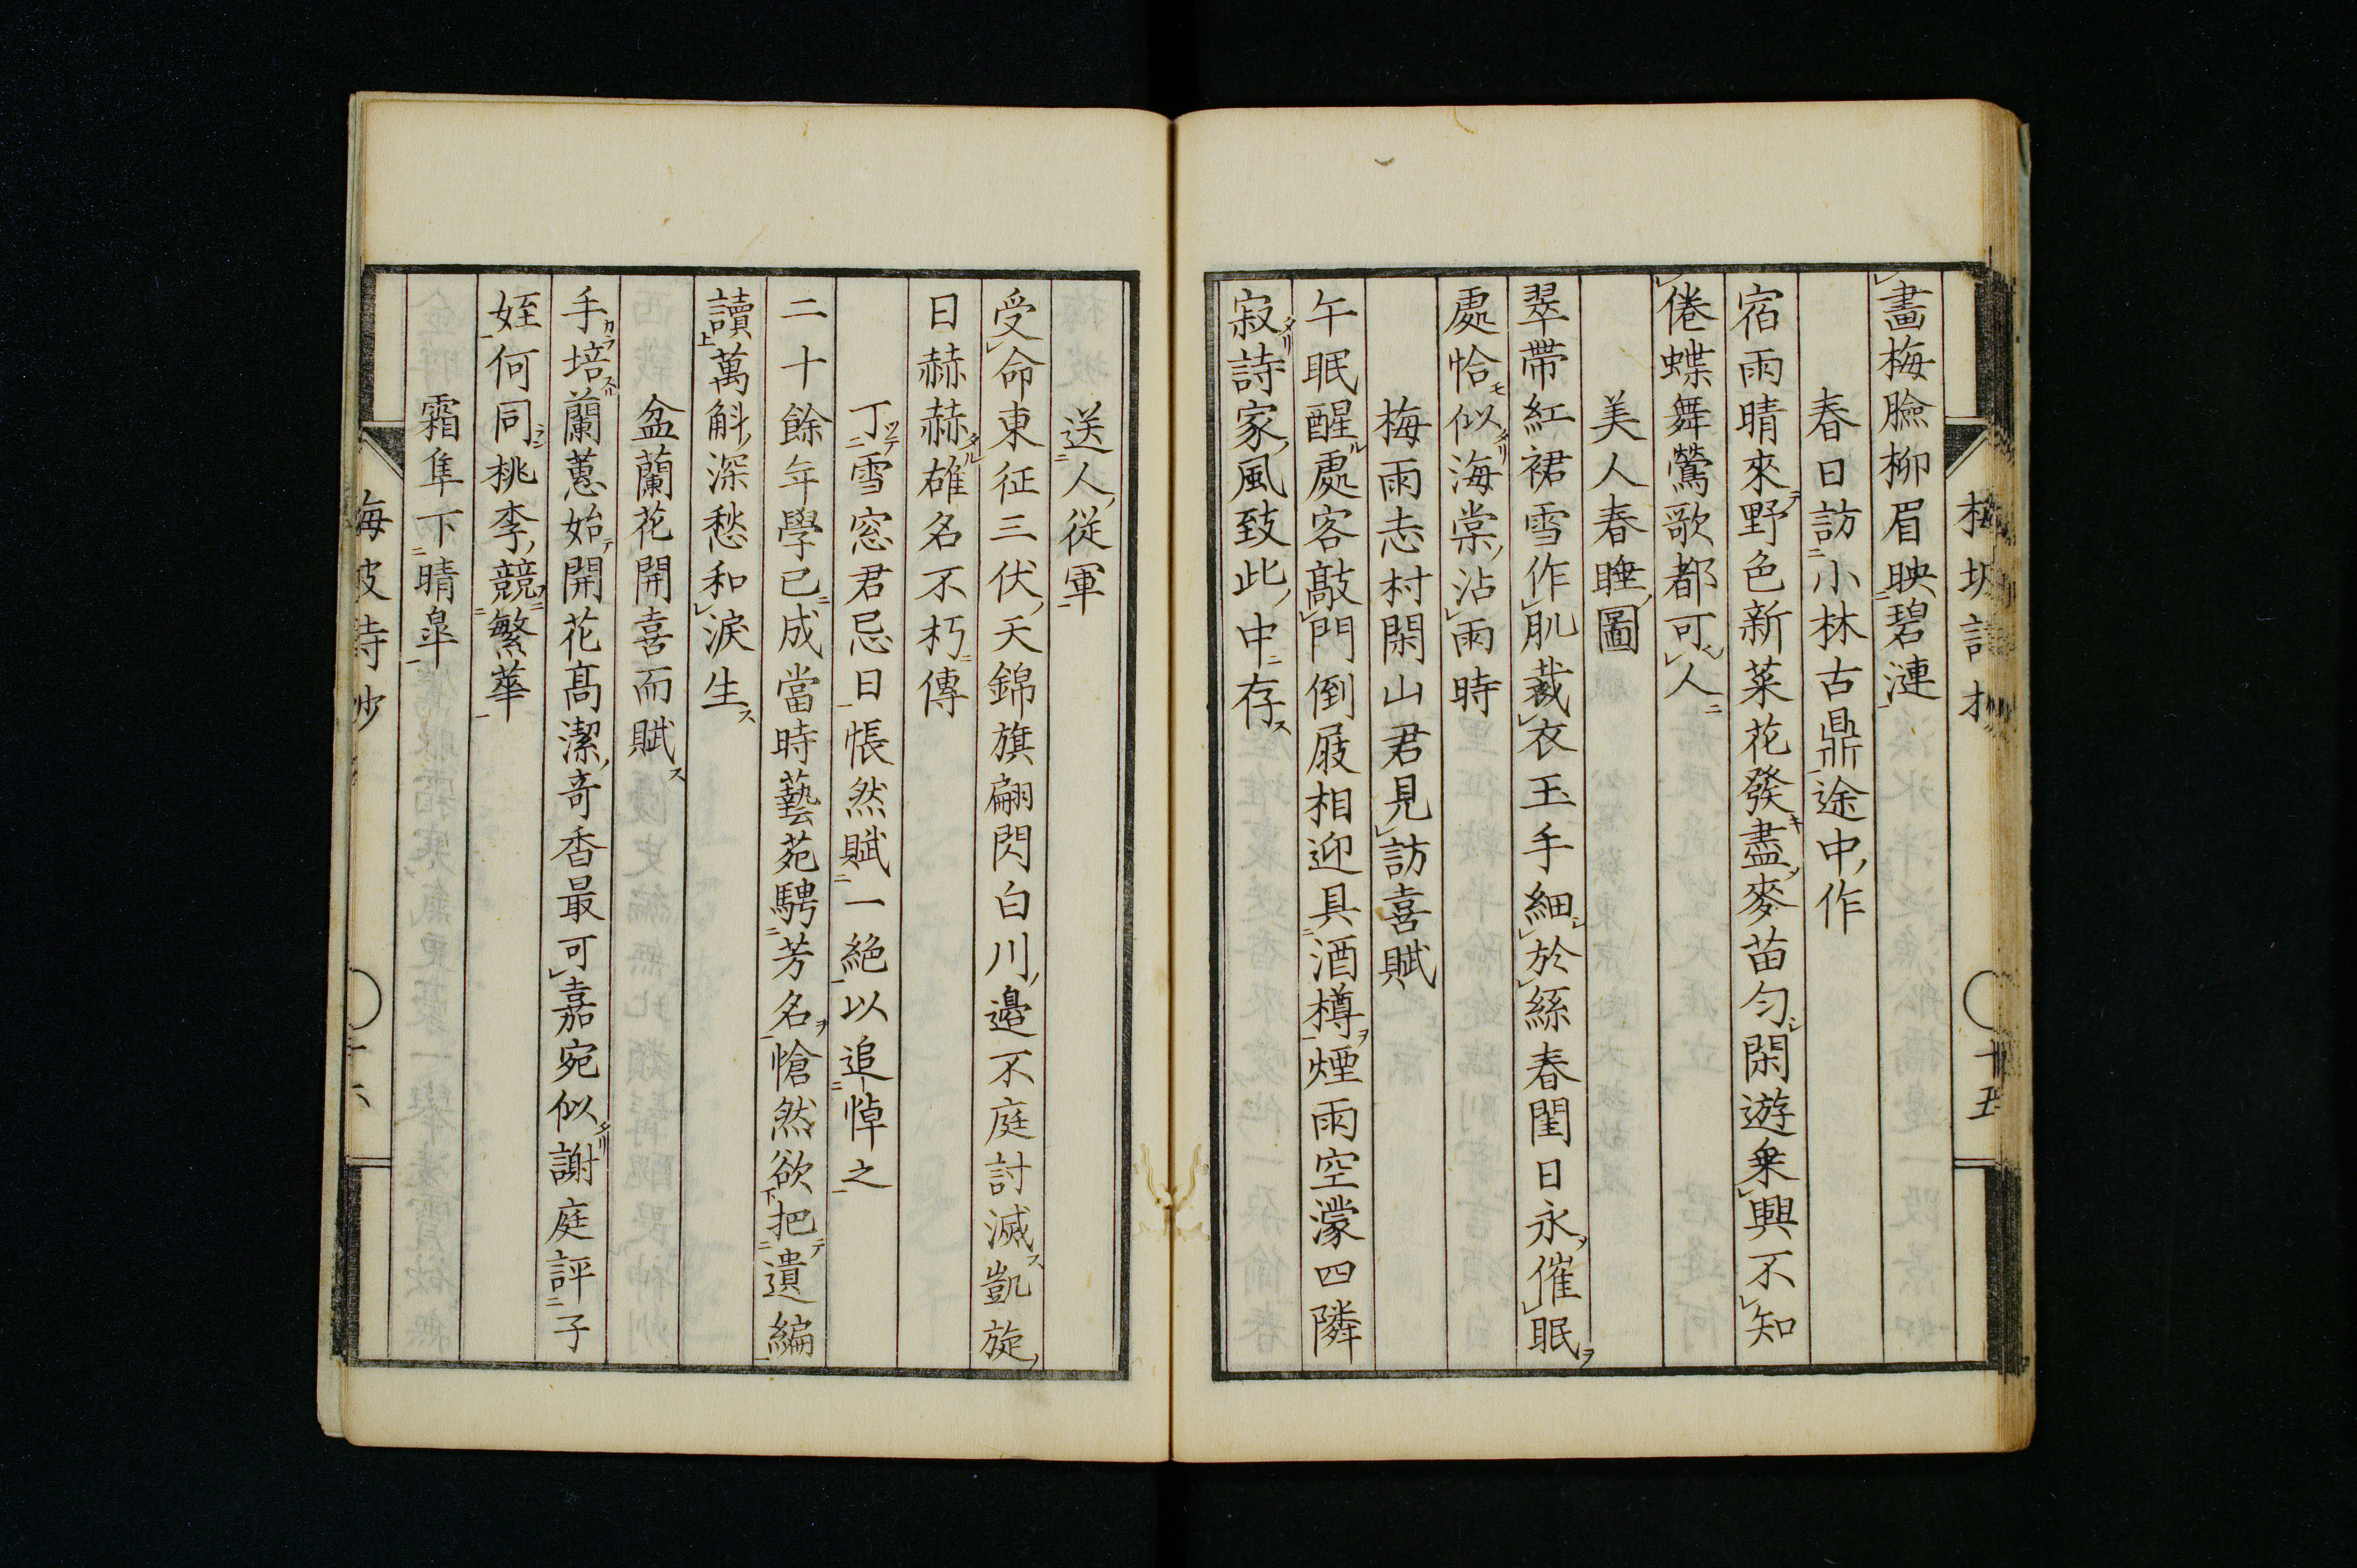 畫梅臉柳眉映碧漣
春日訪小林古鼎途中作
宿雨晴來野色新菜花發盡麥苗勻閑遊乘興不知
倦蝶舞鶯歌都可人
美人春睡圖
翠帶紅裙雪作肌裁衣玉手細於絲春閨日永催眠
處恰似海棠沾雨時
梅雨志村閑山君見訪喜賦
午眠醒處客敲門倒屐相迎具酒樽煙雨空濛四隣
寂詩家風致此中存
送人從軍
受命東征三伏天錦旗翩閃白川邊不庭討滅凱旋
日赫赫雄名不朽傳
丁雪窓君忌日悵然賦一絶以追悼之
二十餘年學已成當時藝苑騁芳名愴然欲把遺編
讀萬斛深愁和淚生
盆蘭花開喜而賦
手培蘭蕙始開花高潔奇香最可嘉宛似謝庭評子
姪何同桃李競繁華
霜隼下晴皐